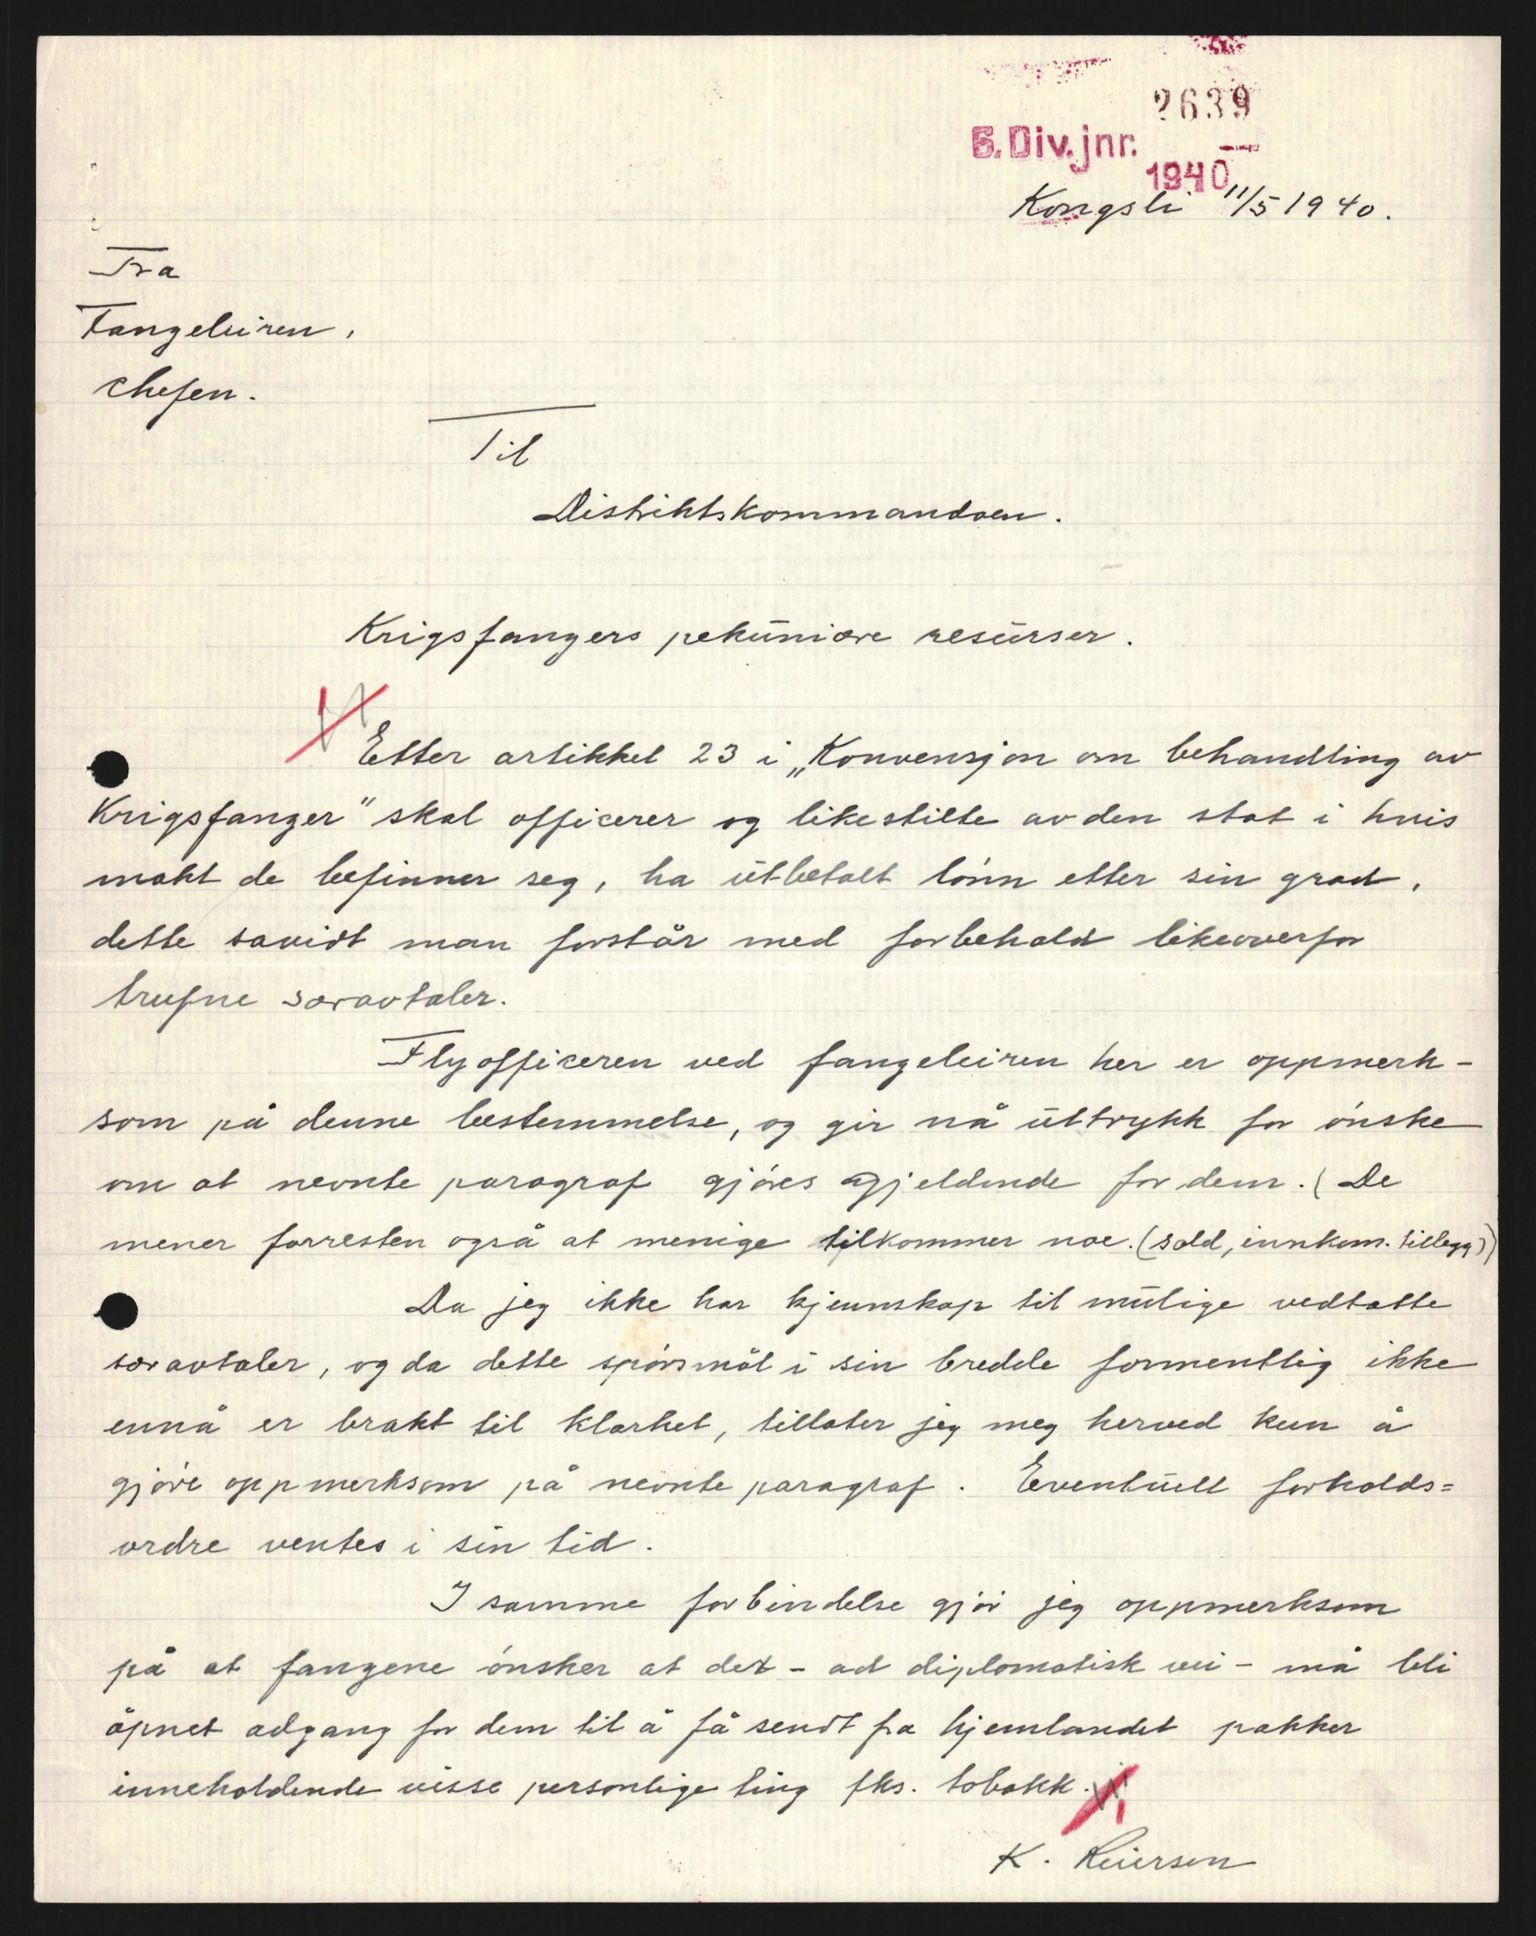 2639
6. Div. jnr. —
1940
Kongsli 11/5 1940.
Fra
Fangeleiren,
chefen.
Til
Distriktskommandoen.
Krigsfangers pekuniære resurser.
Etter artikkel 23 i „Konvensjon om behandling av
Krigsfanger" skal officerer og likestilte av den stat i hvis
makt de befinner seg, ha utbetalt lønn etter sin grad,
dette såvidt man forstår med forbehold likeoverfor
trufne særavtaler.
Flyofficeren ved fangeleiren her er oppmerk-
som på denne bestemmelse, og gir nå uttrykk for ønske
om at nevnte paragraf gjøres gjeldende for dem. (De
mener forresten også at menige tilkommer noe. (sold, innkom. tillegg))
Da jeg ikke har kjennskap til mulige vedtatte
særavtaler, og da dette spørsmål i sin bredde formentlig ikke
ennå er brakt til klarhet, tillater jeg meg herved kun å
gjøre oppmerksom på nevnte paragraf. Eventuell forholds=
ordre ventes i sin tid.
I samme forbindelse gjør jeg oppmerksom
på at fangene ønsker at det - ad diplomatisk vei - må bli
åpnet adgang for dem til å få sendt fra hjemlandet pakker
inneholdende visse personlige ting fks. tobakk.
K. Reiersen